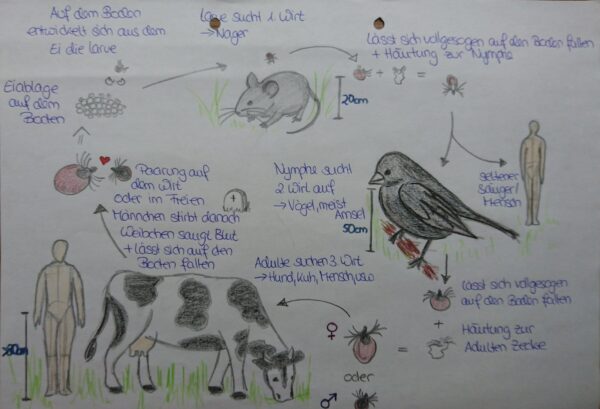 Auf dem Boden
entwickelt sich aus dem
Ei die larve
Larve sucht 1. Wirt
→ Nager
lässt sich vollgesogen auf den Boden fallen
+ Häutung zur Nymphe
+
=
20cm
Eiablage
auf dem
Boden
Paarung auf
dem Wirt
oder im Freien
Männchen stirbt danach
Weibchen saugt Blut
+ lässt sich auf den
Boden fallen
Nymphe sucht
2 Wirt auf
→ Vögel, meist
Amsel
50cm
seltener
Säuger/
Mensch
lässt sich vollgesogen
auf den Boden fallen
+
Häutung zur
Adulten Zecke
Adulte suchen 3. Wirt
→ Hund, Kuh, Mensch, usw
♀
=
oder
♂